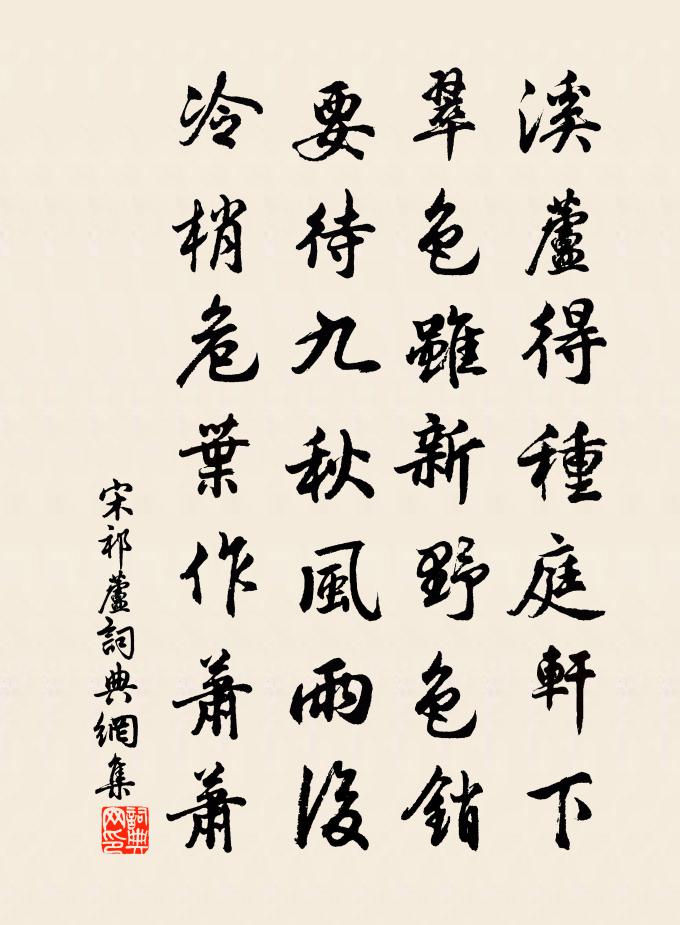 溪蘆得種庭軒下
翠色雖新野色銷
要待九秋風雨後
冷梢危葉作蕭蕭
宋祁蘆詞典網集
詞典网印